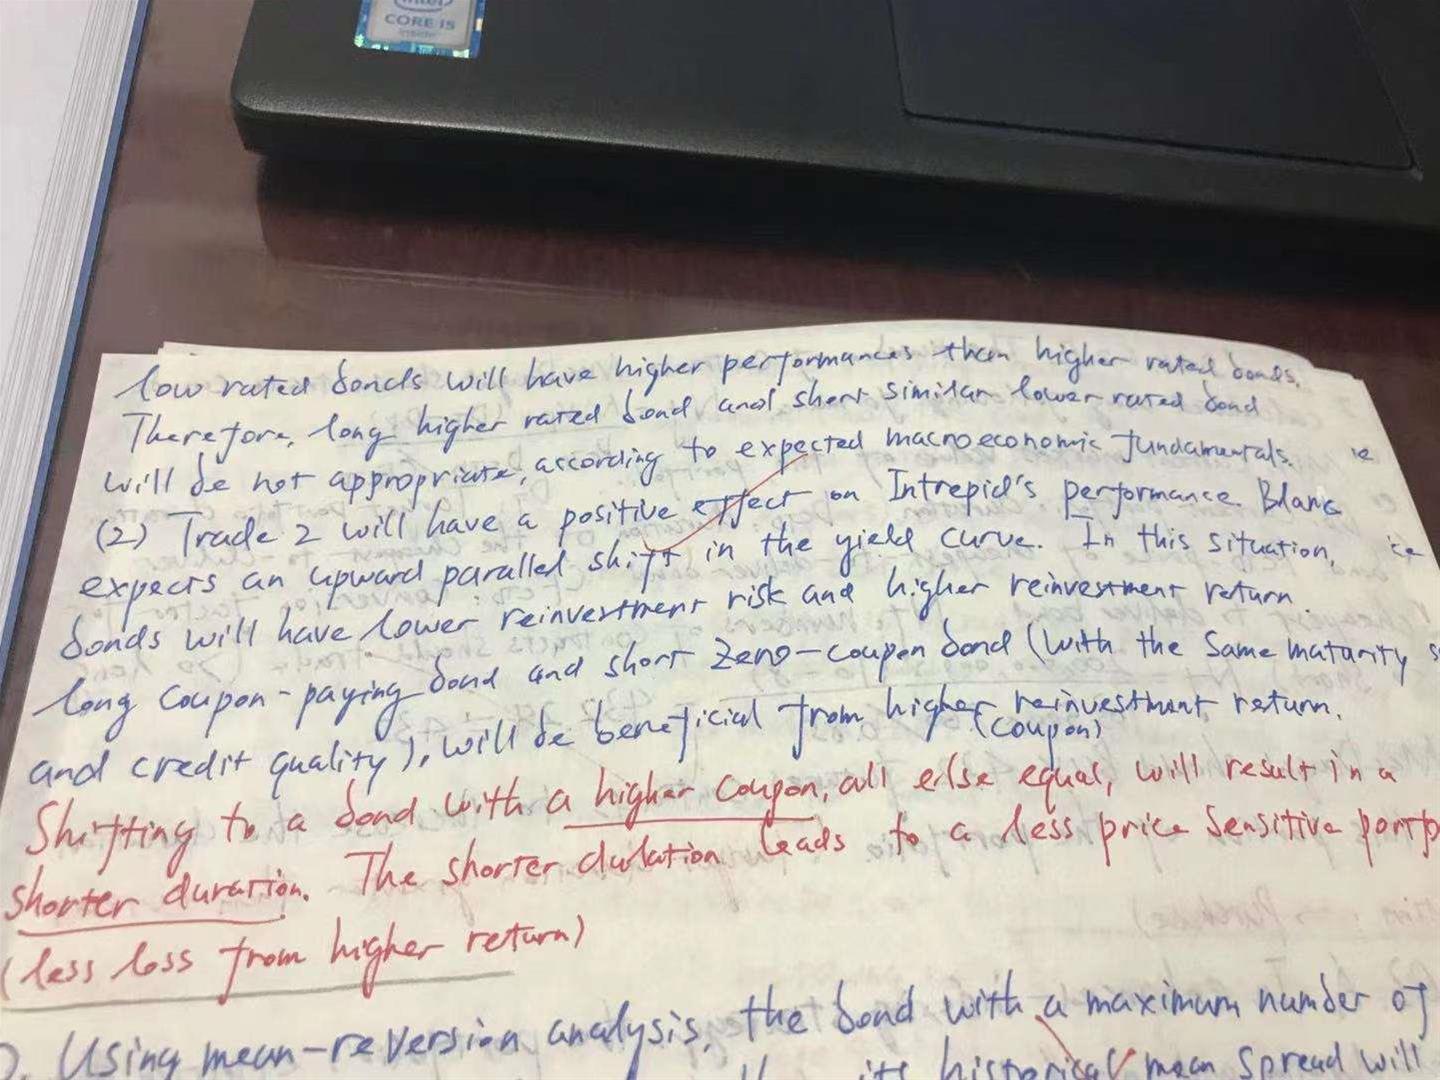 intel
CORE i5
inside
low rated bonds will have higher performances than higher rated bonds.
Therefore, long higher rated bond and short similar lower rated bond
will be not appropriate, according to expected macroeconomic fundamentals.
(2) Trade 2 will have a positive effect on Intrepid's performance. Blanc
expects an upward parallel shift in the yield curve. In this situation,
bonds will have lower reinvestment risk and higher reinvestment return.
long coupon-paying bond and short zero-coupon bond (with the same maturity
and credit quality), will be beneficial from higher reinvestment return.
(coupon)
Shifting to a bond with a higher coupon, all else equal, will result in a
shorter duration. The shorter duration leads to a less price sensitive portfo
(less loss from higher return)
Using mean-reversion analysis, the bond with a maximum number of
its historical mean spread will